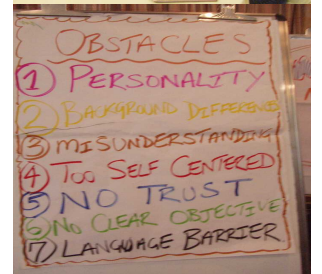 OBSTACLES
1 PERSONALITY
2 BACKGROUND DIFFERENCE
3 MISUNDERSTANDING
4 TOO SELF CENTERED
5 NO TRUST
6 NO CLEAR OBJECTIVE
7 LANGUAGE BARRIER